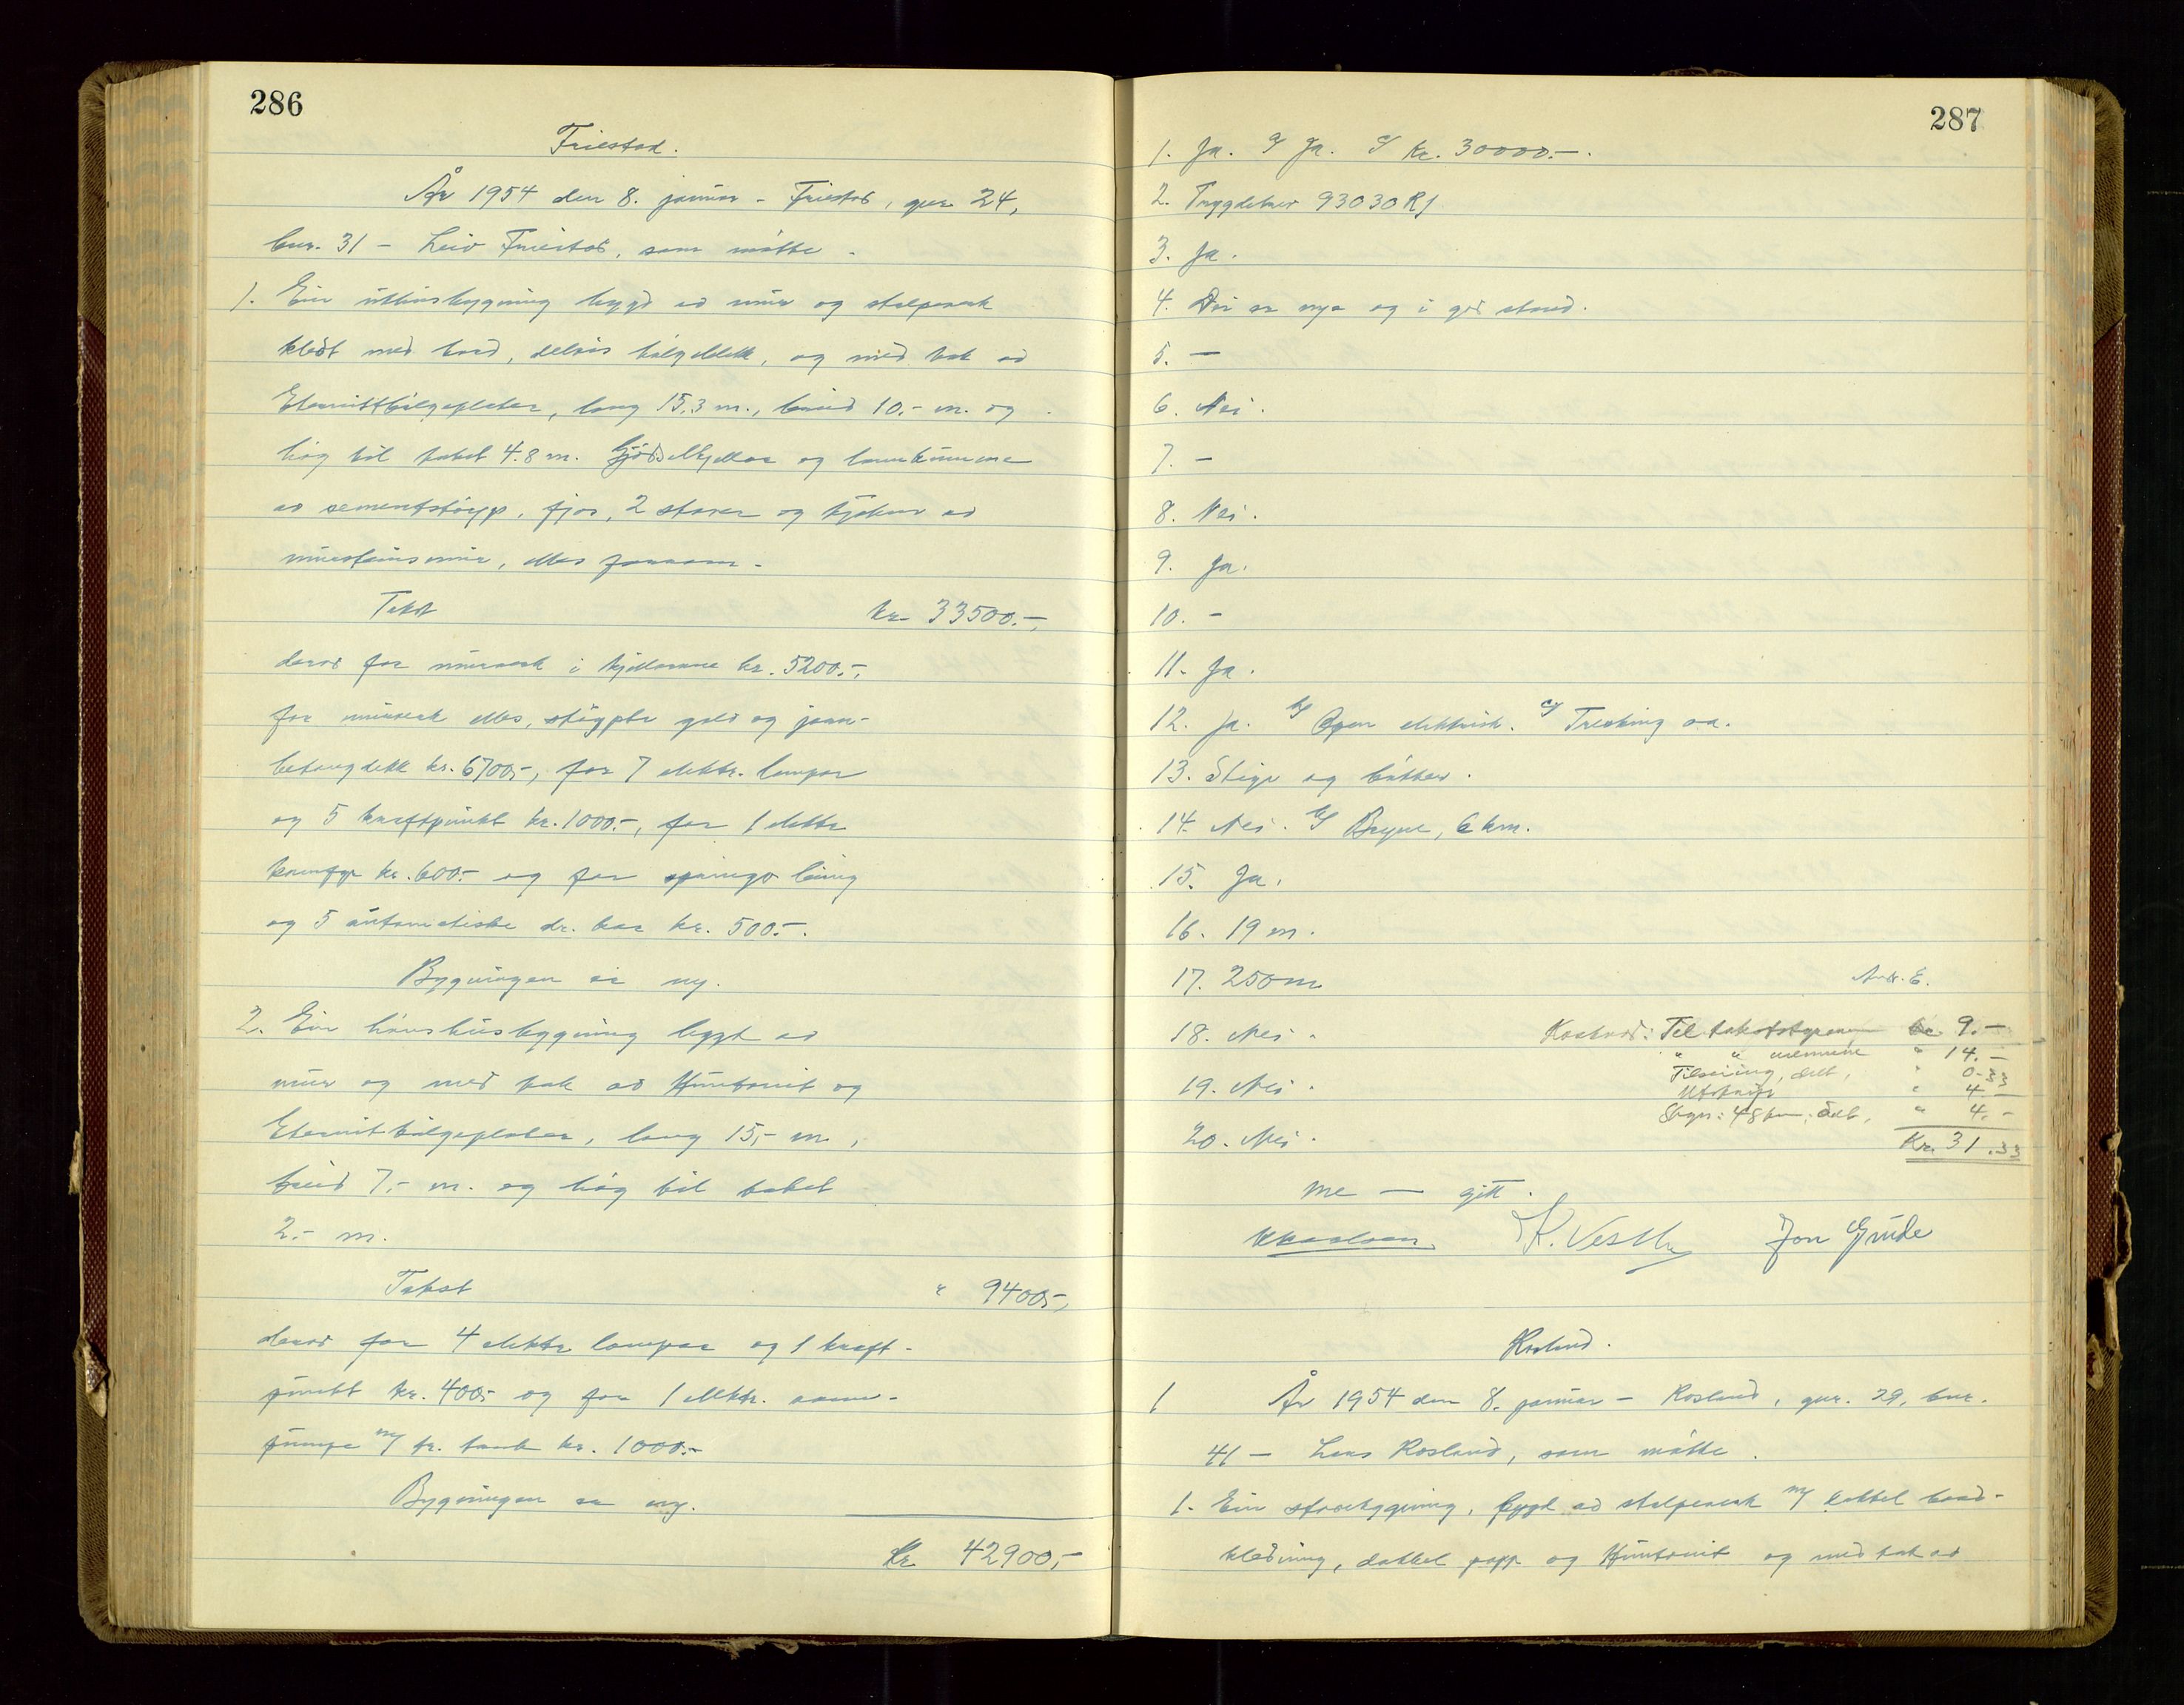 286
Friestad.
År 1954 den 8. januar - Friestad, gnr. 24,
bnr. 31 - Leiv Friestad, som møtte.
1. Ein uthusbygning bygd av mur og stolpeverk
kledt med bord, delvis bølgeblekk, og med tak av
Eternittbølgeplater, lang 15,3 m., breid 10.- m. og
høg til taket 4.8 m. Gjødselkjellar og landkumme
av sementstøyp, fjøs, 2 stover og kjøken av
mursteinsmur, elles
Takst kr. 33500.-,
derav for murverk i kjellarane kr. 5200.-,
for murverk elles, støypte golv og jarn-
betongdekk kr. 6700,-, for 7 elektr. lampor
og 5 kraftpunkt kr. 1000.-, for 1 elektr.
komfyr kr. 600.- og for springv. lening
og 5 automatiske dr. kar kr. 500.-.
Bygningen er ny.
2. Ein hønshusbygning bygd av
mur og med tak av Huntonit og
Eternitbølgeplater, lang 15,- m.,
breid 7.- m. og høg til taket
2.- m.
Takst " 9400,-,
derav for 4 elektr. lampor og 1 kraft-
punkt kr. 400,- og for 1 elektr. vann-
pumpe m/ tr. tank kr. 1000.-
Bygningen er ny.
Kr. 42900,-
287
1. Ja. b/ Ja. c/ Kr. 30000.-.
2. Trygdelaus 93030 R/
3. Ja.
4. Dei er nye og i god stand.
5. -
6. Nei.
7. -
8. Nei.
9. Ja.
10. -
11. Ja.
12. Ja. b/ Open elektrisk. c/ Tresking oa.
13. Stige og bøtter.
14. Nei. b/ Bryne, 6 km.
15. Ja.
16. 19 m.
17. 250 m
18. Nei.
19. Nei.
20. Nei.
Avd. E.
Kostnad: Til takststyrem kr. 9.-
" " mennene " 14.-
Tilseiing, delt, " 0.33
Utskrift " 4.-
Skyss: 48 km, delt, " 4.-
Kr. 31.33
Me — gitt.
K. Vestly Jon Grude
Rosland.
1 År 1954 den 8. januar - Rosland, gnr. 29, bnr.
41 - Lars Rosland, som møtte.
1. Ein stovebygning, bygd av stolpeverk m/ dobbel bord-
kledning, dobbel papp og Huntonit og med tak av